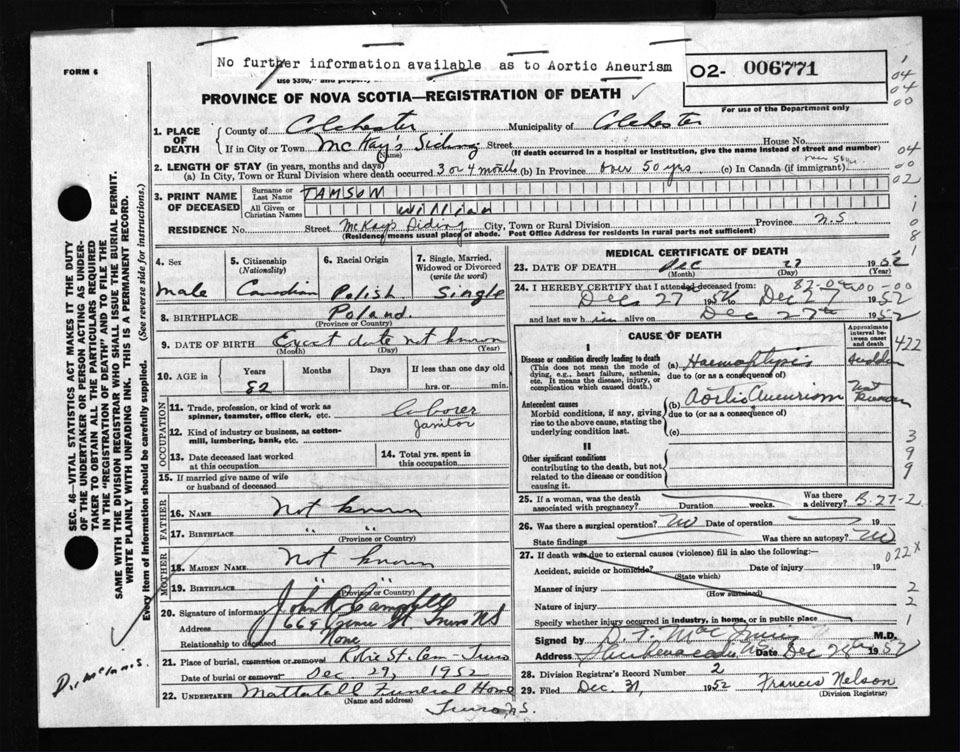 No further information available as to Aortic Aneurism
FORM 6
O2- 006771
For use of the Department only
PROVINCE OF NOVA SCOTIA—REGISTRATION OF DEATH
1. PLACE OF DEATH
County of Colchester Municipality of Colchester
If in City or Town McKay's Siding Street House No.
(Name) (If death occurred in a hospital or institution, give the name instead of street and number)
2. LENGTH OF STAY (in years, months and days)
(a) In City, Town or Rural Division where death occurred 3 or 4 months (b) In Province over 50 yrs. (c) In Canada (if immigrant) over 50 yrs
3. PRINT NAME OF DECEASED
Surname or Last Name TAMSON
All Given or Christian Names William
RESIDENCE No. Street McKay's Siding City, Town or Rural Division Province N.S.
(Residence means usual place of abode. Post Office Address for residents in rural parts not sufficient)
4. Sex Male
5. Citizenship (Nationality) Canadian
6. Racial Origin Polish
7. Single, Married, Widowed or Divorced (write the word) Single
8. BIRTHPLACE Poland
(Province or Country)
9. DATE OF BIRTH Exact date not known
(Month) (Day) (Year)
10. AGE in Years 82 Months Days If less than one day old hrs. or min.
OCCUPATION
11. Trade, profession, or kind of work as spinner, teamster, office clerk, etc. Laborer
12. Kind of industry or business, as cotton-mill, lumbering, bank, etc. Janitor
13. Date deceased last worked at this occupation
14. Total yrs. spent in this occupation
15. If married give name of wife or husband of deceased
FATHER
16. NAME Not known
17. BIRTHPLACE " "
(Province or Country)
MOTHER
18. MAIDEN NAME Not known
19. BIRTHPLACE " "
(Province or Country)
20. Signature of informant John R Campbell
Address 669 Prince St. Truro NS
Relationship to deceased None
21. Place of burial, cremation or removal Robie St. Cem - Truro
Date of burial or removal Dec 29, 1952
22. UNDERTAKER Mattatall Funeral Home
(Name and address)
Truro, N.S.
MEDICAL CERTIFICATE OF DEATH
23. DATE OF DEATH Dec 27 1952
(Month) (Day) (Year)
24. I HEREBY CERTIFY that I attended deceased from:
Dec 27 1952 to Dec 27 1952
and last saw him alive on Dec 27th 1952
CAUSE OF DEATH
Approximate interval between onset and death
I
Disease or condition directly leading to death
(This does not mean the mode of dying, e.g., heart failure, asthenia, etc. It means the disease, injury, or complication which caused death.)
(a) Haemoptysis sudden
due to (or as a consequence of)
Antecedent causes
Morbid conditions, if any, giving rise to the above cause, stating the underlying condition last.
(b) Aortic Aneurism not known
due to (or as a consequence of)
(c)
II
Other significant conditions
contributing to the death, but not related to the disease or condition causing it.
25. If a woman, was the death associated with pregnancy? Duration weeks. Was there a delivery?
B-27-2
26. Was there a surgical operation? No Date of operation 19
State findings Was there an autopsy? No
27. If death was due to external causes (violence) fill in also the following:—
Accident, suicide or homicide? Date of injury 19
(State which)
Manner of injury
(How sustained)
Nature of injury
Specify whether injury occurred in industry, in home, or in public place
Signed by M.D.
Address Shubenacadie NS Date Dec 28th 1952
28. Division Registrar's Record Number 2
29. Filed Dec 31, 1952 Francis Nelson
(Division Registrar)
SEC. 46—VITAL STATISTICS ACT MAKES IT THE DUTY
OF THE UNDERTAKER OR PERSON ACTING AS UNDER-
TAKER TO OBTAIN ALL THE PARTICULARS REQUIRED
IN THE "REGISTRATION OF DEATH" AND TO FILE THE
SAME WITH THE DIVISION REGISTRAR WHO SHALL ISSUE THE BURIAL PERMIT.
WRITE PLAINLY WITH UNFADING INK. THIS IS A PERMANENT RECORD.
Every item of information should be carefully supplied. (See reverse side for instructions.)
04
04
00
04
00
02
422
3
9
9
022X
2
2
1